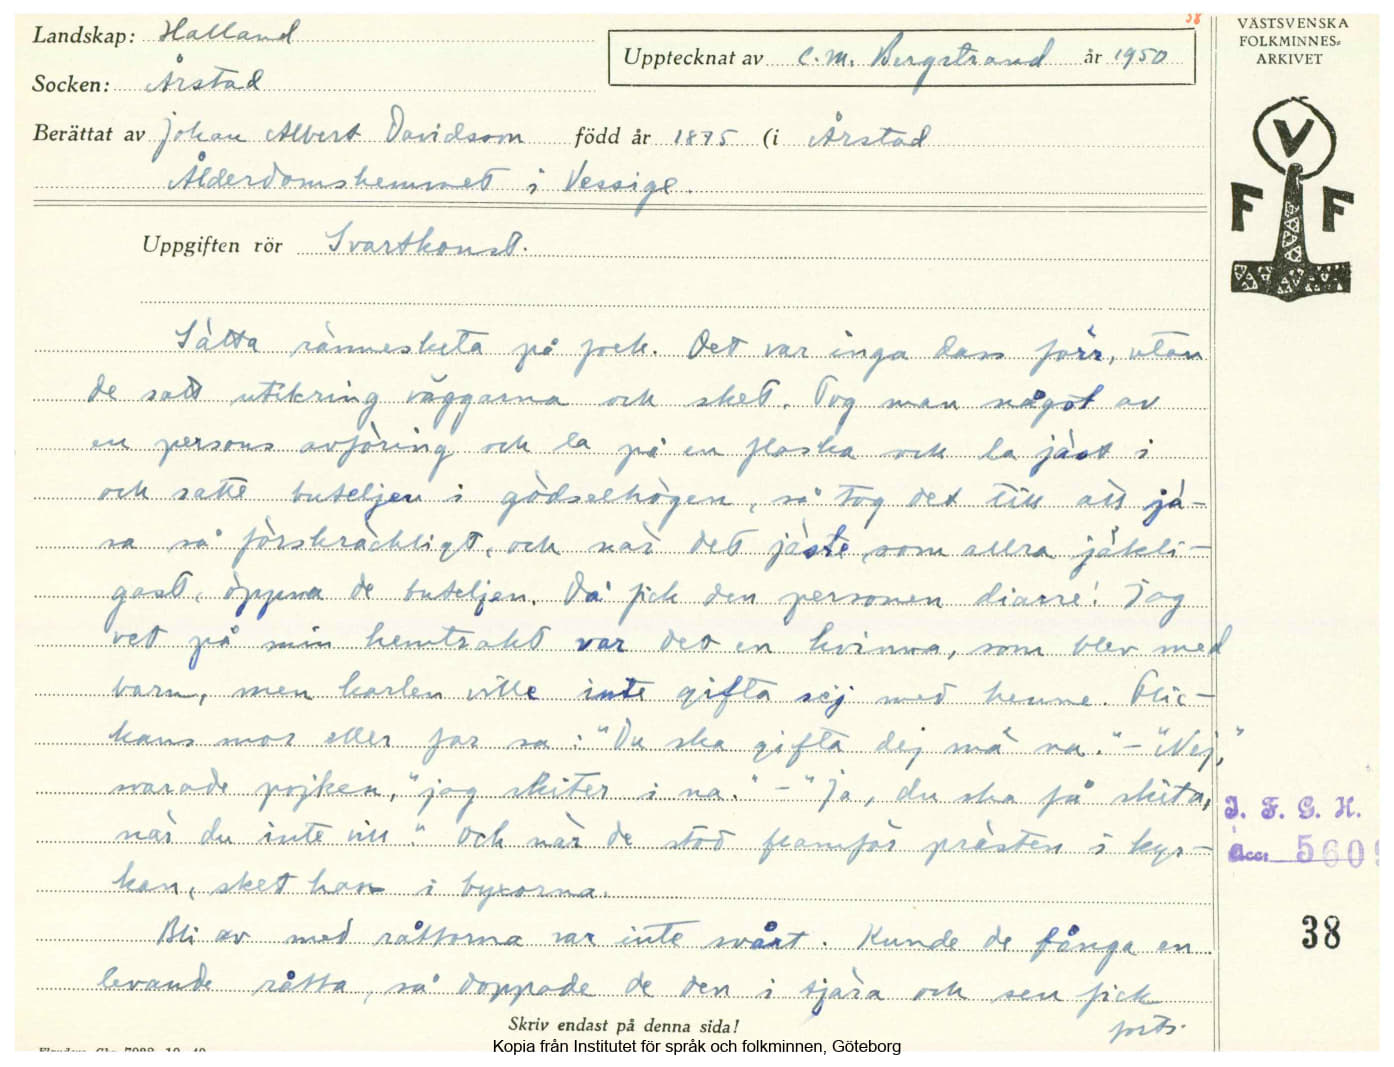 38
Landskap: Halland
VÄSTSVENSKA
FOLKMINNES-
ARKIVET
Upptecknat av C. M. Bergstrand år 1950
Socken: Årstad
Berättat av Johan Albert Davidsson född år 1875 (i Årstad
Ålderdomshemmet i Vessige.
V
F F
Uppgiften rör Svartkonst.
Sätta rännesketa på folk. Det var inga dass förr, utan
de satt utikring väggarna och sket. Tog man något av
en persons avföring och la på en flaska och la jäst i
och satte buteljen i gödselhögen, så tog det till att jä-
sa så förskräckligt, och när det jäste som allra jäkli-
gast, öppna de buteljen. Då fick den personen diarré. Jag
vet på min hemtrakt var det en kvinna, som blev med
barn, men karlen ville inte gifta sej med henne. Flic-
kans mor eller far sa: "Du ska gifta dej mä na." - "Nej,"
svarade pojken, "jag skiter i na." - "Ja, du ska få skita,
när du inte vill." Och när de stod framför prästen i kyr-
kan, sket han i byxorna.
Bli av med råttorna var inte svårt. Kunde de fånga en
levande råtta, så doppade de den i tjära och sen fick
forts.
I. F. G. H.
Acc. 5609
38
Skriv endast på denna sida!
Kopia från Institutet för språk och folkminnen, Göteborg